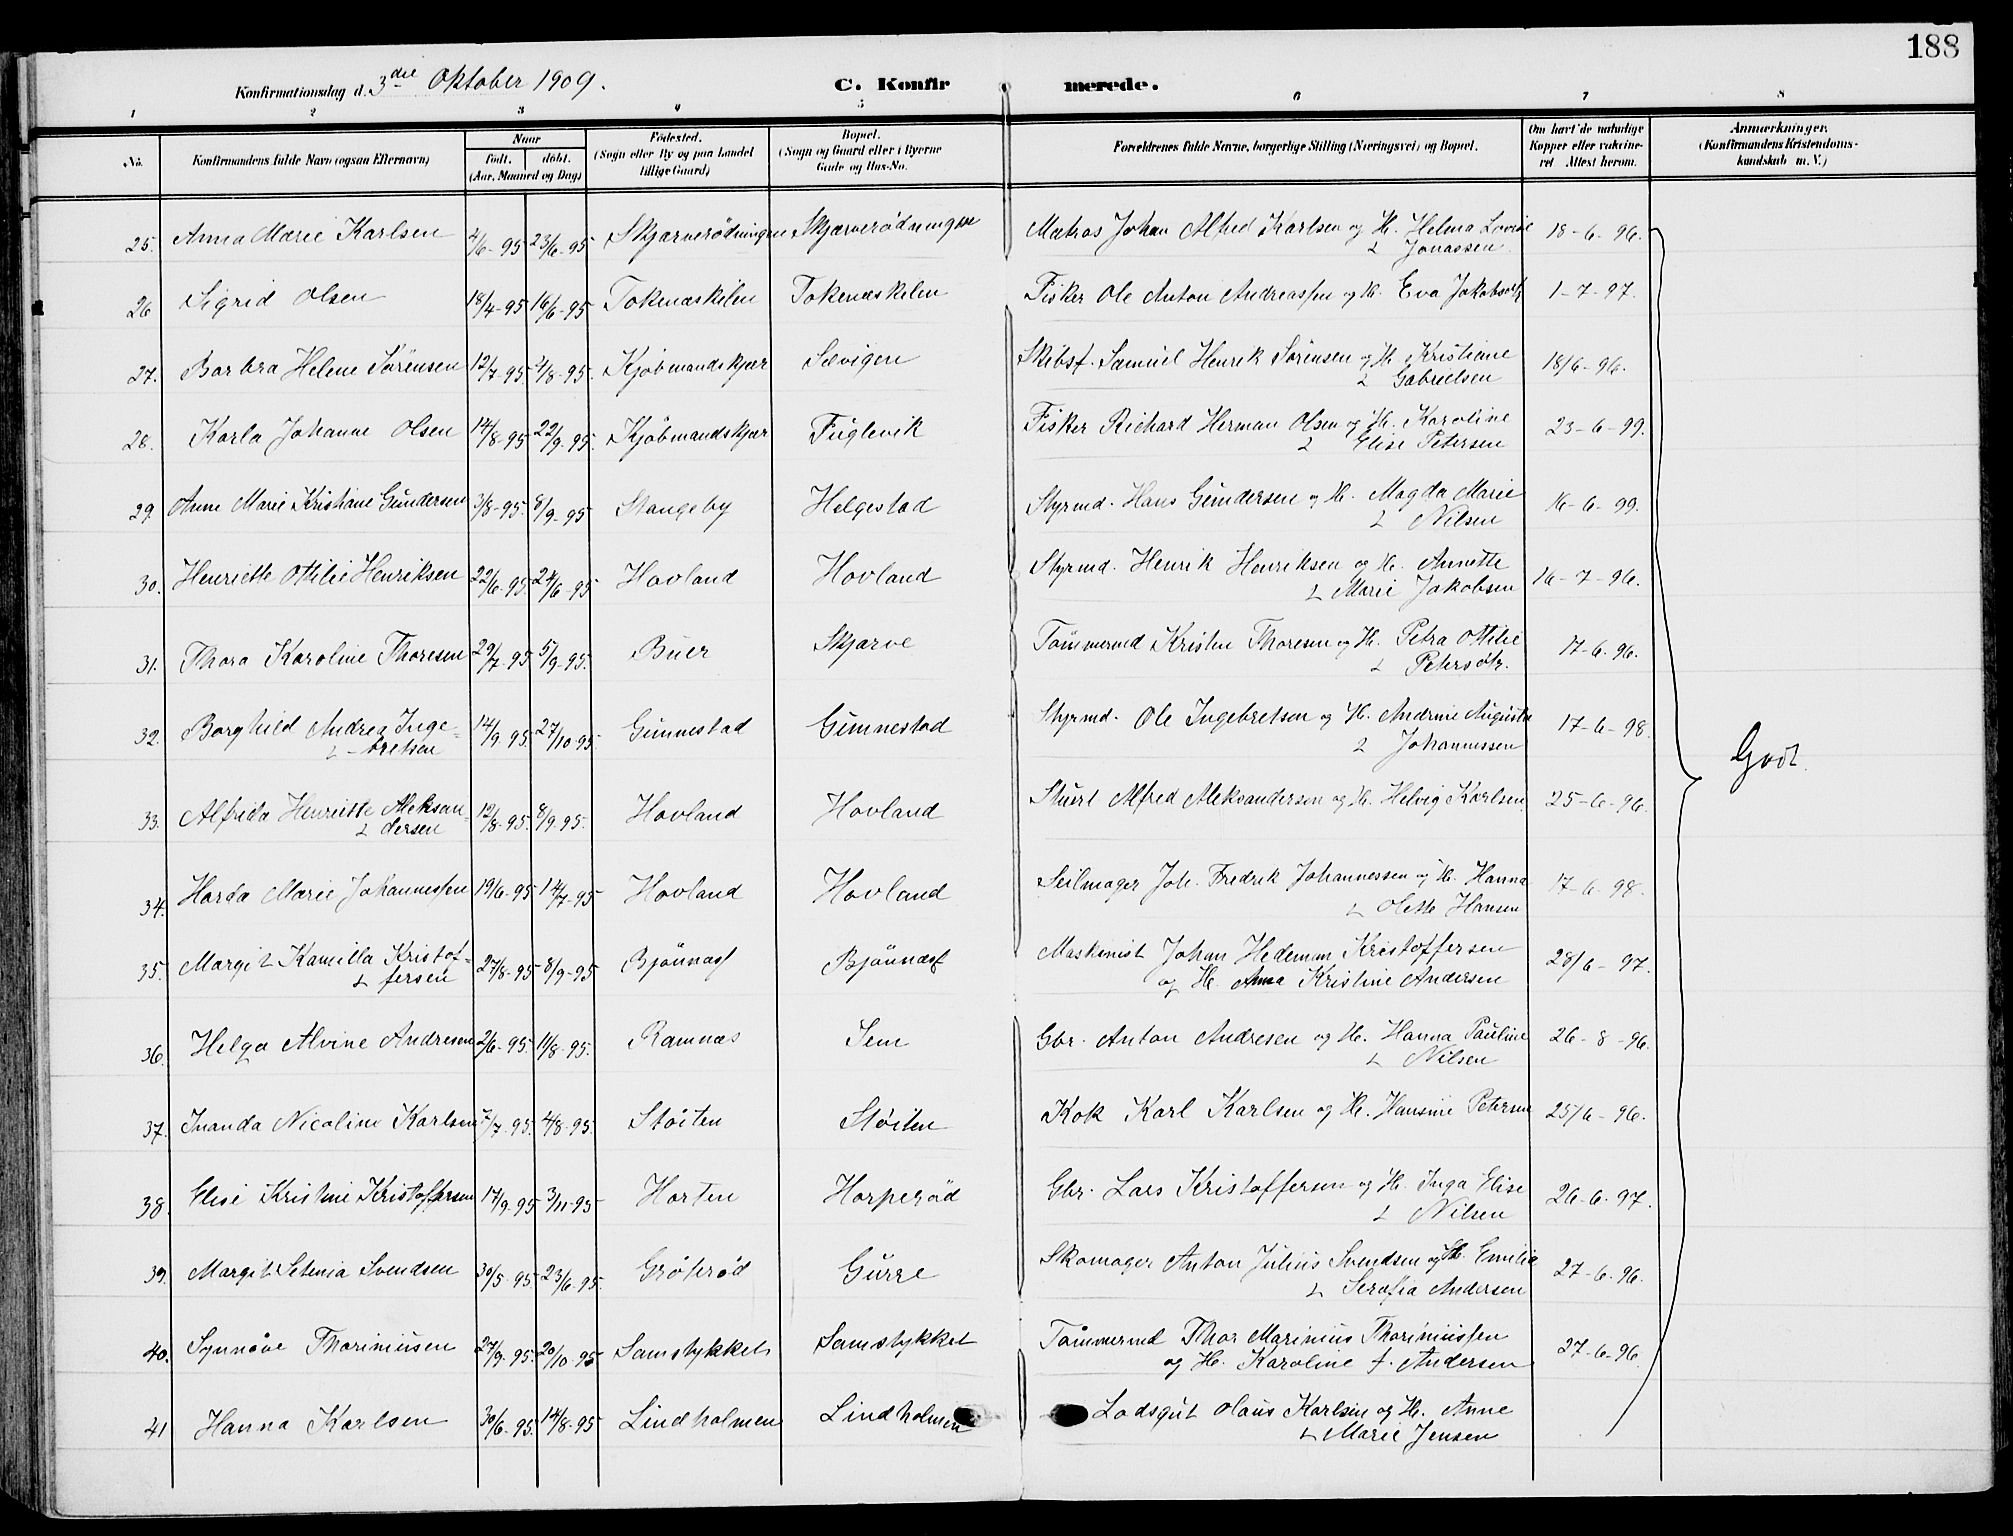 188
Konfirmationsdag d. 3die Oktober 1909.
C. Konfirmerede.
1 2 3 4 5 6 7 8
No. Konfirmandens fulde Navn (ogsaa Efternavn) Naar født. døbt. (Aar, Maaned og Dag) Fødested. (Sogn eller By og paa Landet tillige Gaard) Bopæl. (Sogn og Gaard eller i Byerne Gade og Hus-No. Forældrenes fulde Navne, borgerlige Stilling (Næringsvei) og Bopæl. Om havt de naturlige Kopper eller vaksineret Attest herom. Anmærkninger. (Konfirmandens Kristendomskundskab m. V.)
25. Anna Marie Karlsen 4/6-95 23/6-95 Skjærverødningen Skjærverødningen Matros Johan Alfred Karlsen og H. Helma Lovise Jonassen. 18-6-96.
26 Sigrid Olsen 18/4-95 16/6-95 Tokenæskilen Tokenæskilen Fisker Ole Anton Andreassen og H. Eva Jakobsdt 1-7-97.
27. Barbra Helene Sørensen 12/7-95. 4/8-95. Kjøbmandskjær Sævigen Skibsf. Samuel Henrik Sørensen og H. Kristiane Gabrielsen 18/6-96.
28. Karla Johanne Olsen 14/8-95 22/9-95. Kjøbmandskjær Fuglevik Fisker Richard Herman Olsen og H. Karoline Elise Petersen 23-6-99.
29. Anne Marie Kristiane Gundersen 3/8-95. 8/9-95 Stangeby Helgestad Styrmd. Hans Gundersen og H. Magda Marie Nilsen 16-6-99.
30. Henriette Ottilie Henriksen 22/6-95. 24/6-95 Hovland Hovland Styrmd. Henrik Henriksen og H. Annette Marie Jakobsen 16-7-96.
31. Thora Karoline Thoresen 29/7-95 5/9-95. Buer Skjærve Tømmermd Kristen Thoresen og H. Petra Ottilie Petersdtr. 17-6-96.
32. Borghild Andrea Ingebretsen 14/9-95. 27/10-95 Gunnestad Gunnestad Styrmd. Ole Ingebretsen og H. Andrine Augusta Johannessen 17-6-98.
33. Alfrida Henriette Aleksandersen 12/8-95. 8/9-95. Hovland Hovland Stuert Alfred Aleksandersen og H. Helvig Karlsen. 25-6-96.
34. Harda Marie Johannessen 19/6-95 14/7-95 Hovland Hovland Seilmager Joh. Fredrik Johannessen og H. Hanna Olette Hansen 17-6-98.
35. Margit Kamilla Kristoffersen 27/8-95 8/9-95 Bjønnæs Bjønnæs Maskinist Johan Hedeman Kristoffersen og H. Anna Kristine Andersen 28/6-97.
36. Helga Alvine Andresen 2/6-95. 11/8-95. Ramnæs Sem Gbr. Anton Andresen og H. Hanna Pauline Nilsen 26-8-96.
37. Inanda Nicoline Karlsen 7/7-95. 4/8-95. Støiten Støiten Kok Karl Karlsen og H. Hansine Petersen 25/6-96.
38. Elise Kristine Kristoffersen 14/9-95 3/11-95 Horten Horperød Gbr. Lars Kristoffersen og H. Inga Elise Nilsen 26-6-97.
39. Margit Setenia Svendsen 30/5-95. 23/6-95. Grøterød Gurre Skomager Anton Julius Svendsen og H. Emilia Serafia Andersen 27-6-96.
40. Synnøve Thorinusen 27/9-95. 20/10-95 Samstykket Samstykket Tømmermd Thor Marinius Thoriniussen og H. Karoline f. Andersen 27-6-96.
41 Hanna Karlsen 30/6-95. 14/8-95 Lindholmen Lindholmen Lodsgut Olaus Karlsen og H. Anne Marie Jensen
Godt.